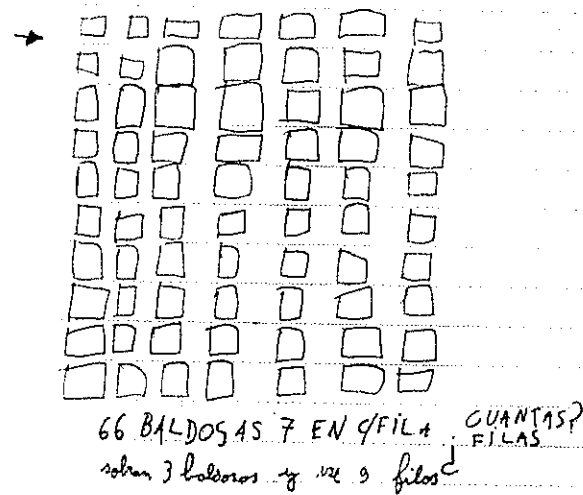 66 BALDOSAS 7 EN C/FILA CUANTAS?
FILAS
sobran 3 baldosas y 9 filas